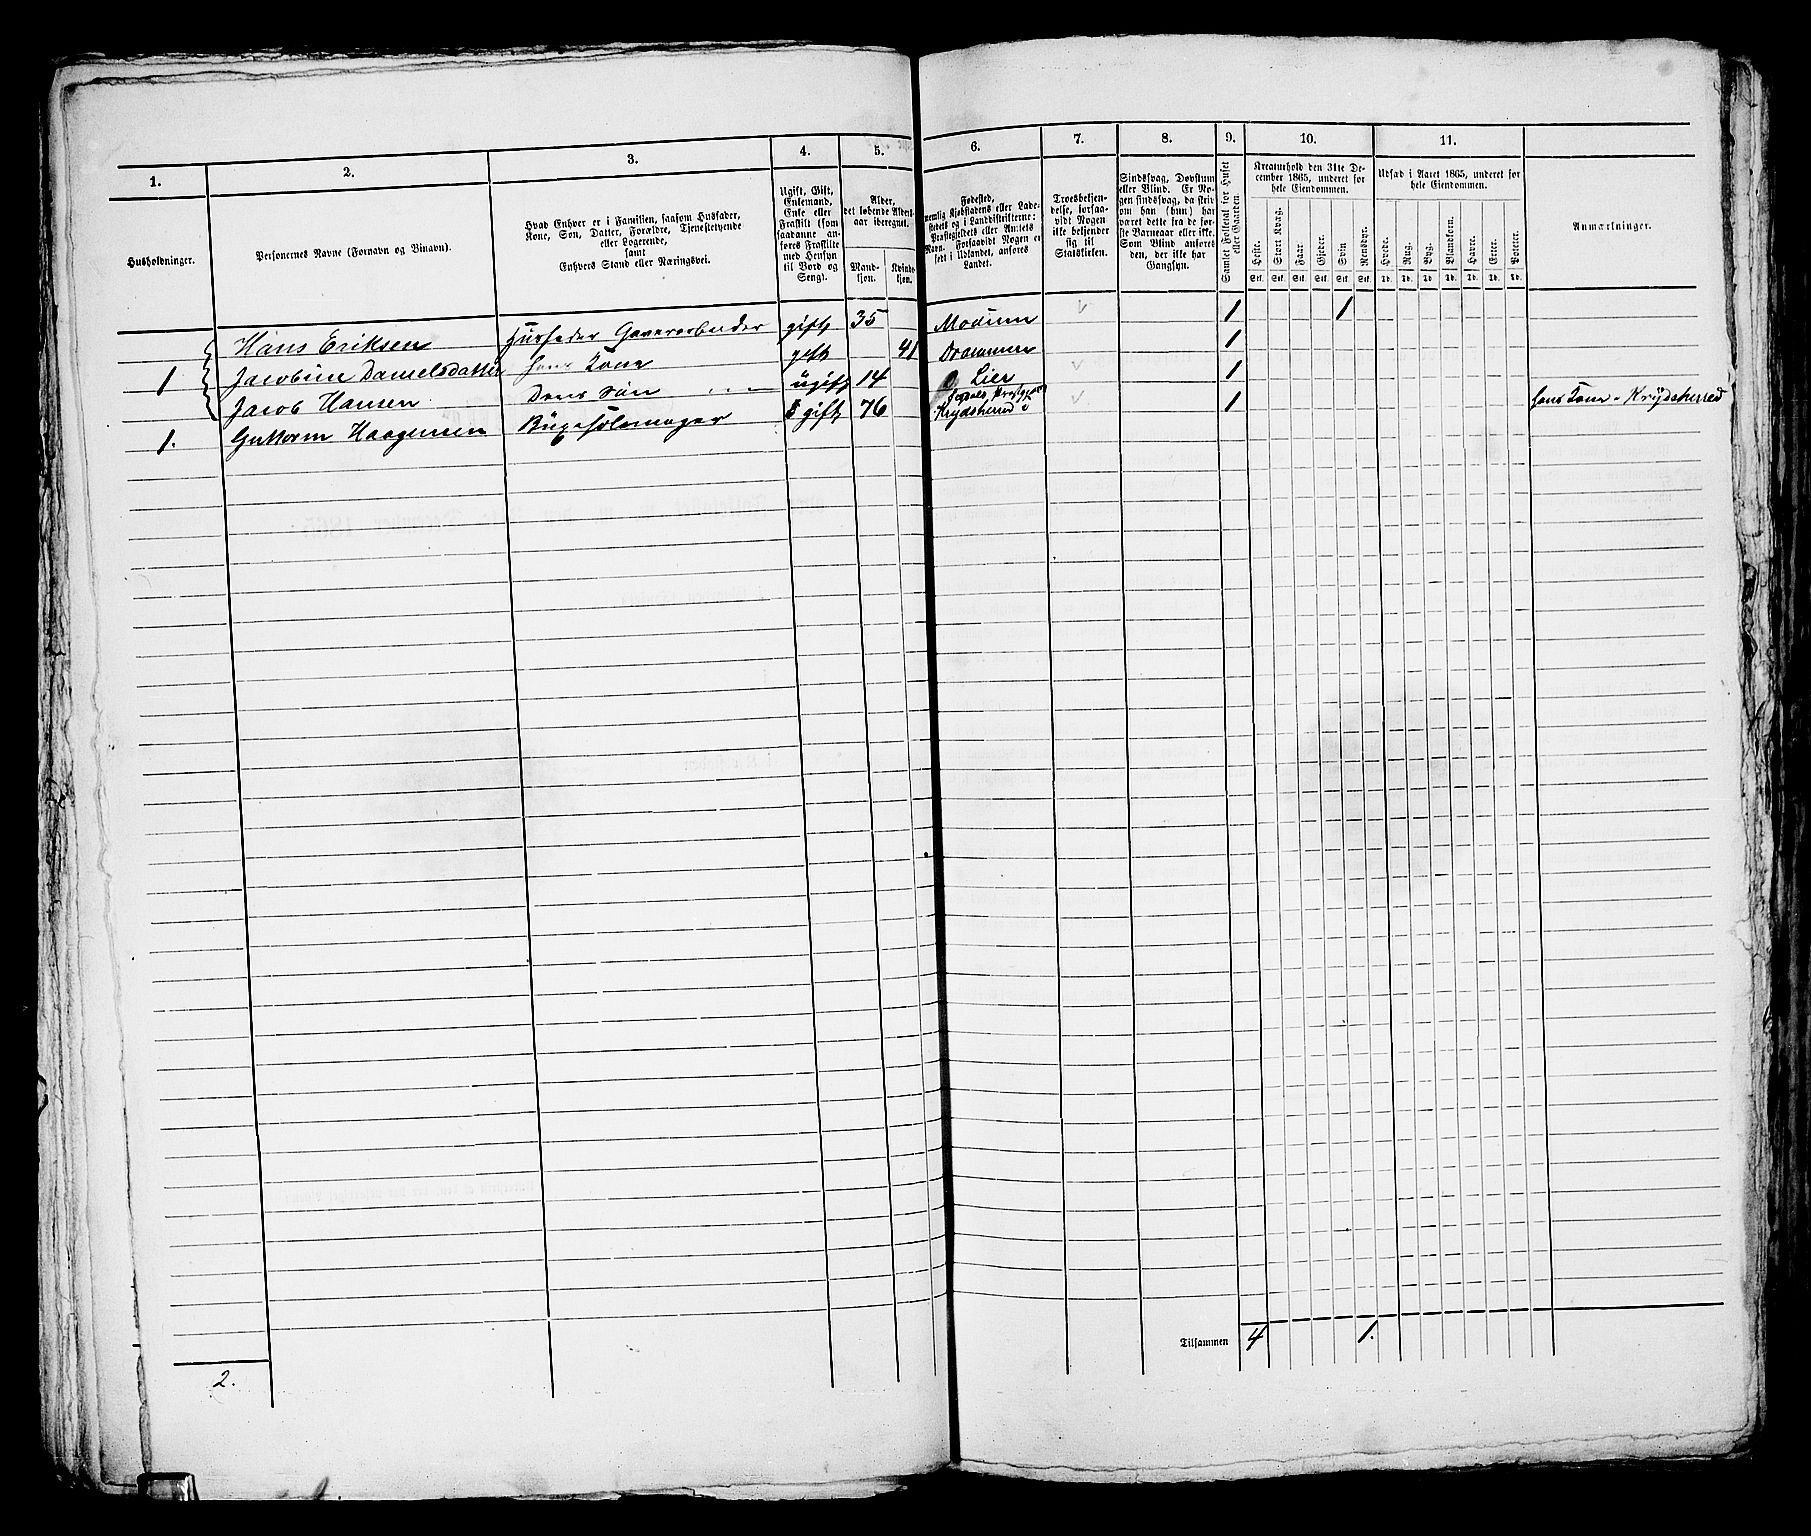 1.
2.
3.
4.
5.
6.
7.
8.
9.
10.
11.
Husholdninger.
Personernes Navne (Fornavn og Binavn).
Hvad Enhver er i Familien, saasom Husfader,
Kone, Søn, Datter, Forældre, Tjenestetyende
eller Logerende,
samt
Enhvers Stand eller Næringsvei.
Ugift, Gift,
Enkemand,
Enke eller
Fraskilt (som
saadanne an-
føres Fraskilte
med Hensyn
til Bord og
Seng).
Alder,
det løbende Alders-
aar iberegnet.
Mand-
kjøn.
Kvinde-
kjøn.
Fødested,
nemlig Kjøbstadens eller Lade-
stedets og i Landdistrikterne:
Præstegjeldets eller Amtets
Navn. Forsaavidt Nogen er
født i Udlandet, anføres
Landet.
Troesbekjen-
delse, forsaa-
vidt Nogen
ikke bekjender
sig til
Statskirken.
Sindssvag, Døvstum
eller Blind. Er No-
gen sindssvag, da skriv
om han (hun) har
været dette fra de før-
ste Barneaar eller ikke.
Som Blind anføres
den, der ikke har
Gangsyn.
Samlet Folketal for Huset
eller Gaarden.
Kreaturhold den 31te De-
cember 1865, underet for
hele Eiendommen.
Heste.
Stort Kvæg.
Faar.
Gjeder.
Svin.
Rensdyr.
Stk. Stk. Stk. Stk. Stk. Stk.
Udsæd i Aaret 1865, underet for
hele Eiendommen.
Hvede.
Rug.
Byg.
Blandkorn.
Havre.
Erter.
Poteter.
Td. Td. Td. Td. Td. Td. Td.
Anmærkninger.
Hans Eriksen Husfader Garverarbeider gift 35 Modum 1 1
1 Jacobine Danielsdatter hans Kone gift 41 Drammen 1
Jacob Hansen Deres Søn ugift 14 Lier 1
1. Guttorm Haagensen gift 76 Krydsherred 1 hans Kone i Krydsherred
Tilsammen 4 1.
2.